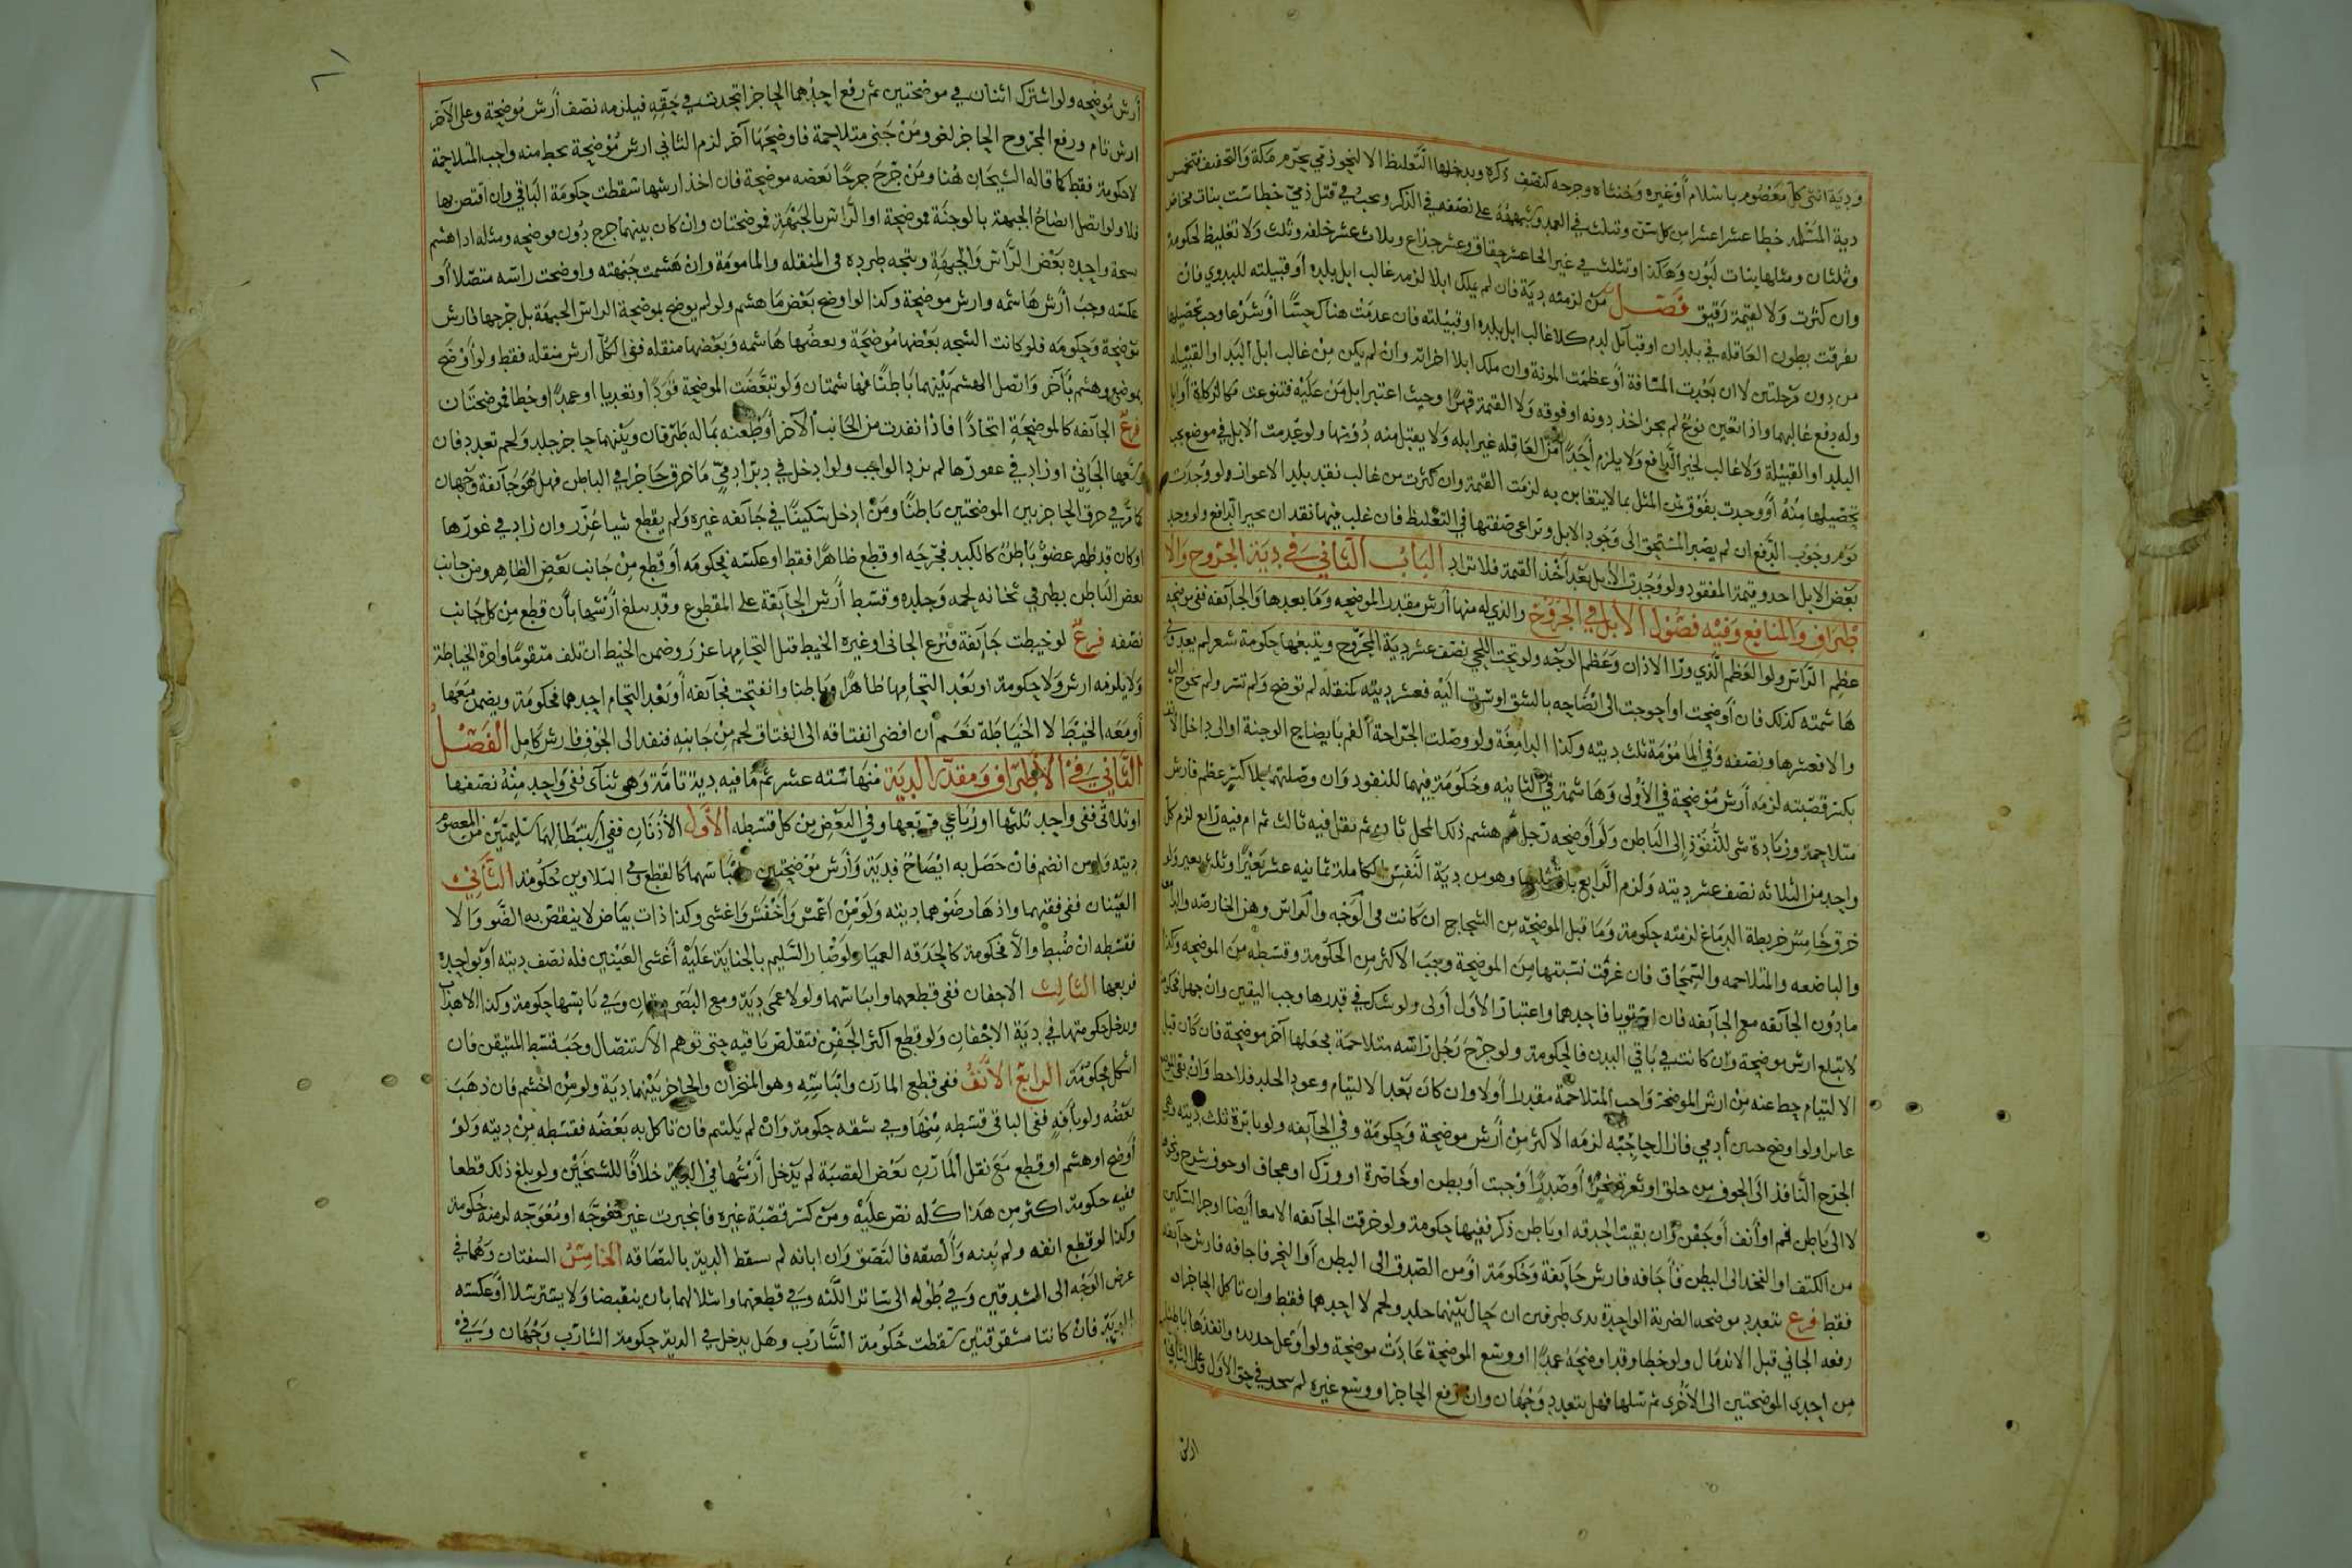 ودية انثى كل معصوم باسلام أو غيره وخنثاه وجرحه كنصف ذكره ويدخلها التغليظ الا لنحو ذمي بحرم مكة والتخفيف فتخمس
دية المسلمة خطا عشرا عشرا من كل سن وتثلث في العمد وشبهه على نصفه في الذكر ويجب في قتل ذمي خطا ست بنات مخاض
وثلثان ومثلها بنات لبون وهكذا وتثلث في غير الخطا عشر حقاق وعشر جذاع وثلاث عشر خلفه وثلث ولا تغليظ لحكومة
وان كثرت ولا لقيمة رقيق فصل من لزمته دية فان لم يملك ابلا لزمه غالب ابل بلده أو قبيلته للبدوي فان
تفرقت بطون العاقله في بلدان او قبائل لزم كلا غالب ابل بلده او قبيلته فان عدمت هناك حسا أو شرعا وجب تحصيلها
من دون مرحلتين لا ان بعدت المسافة أو عظمت المونة وان ملك ابلا اجزاته وان لم يكن من غالب ابل البلد او القبيله
وله دفع غالبهما واذا تعين نوع لم يجز اخذ دونه او فوقه ولا القيمة قهرا وحيث اعتبر ابل من عليه فتنوعت فكالزكاة أو ابل
البلد او القبيلة ولا غالب تخير الدافع ولا يلزم أحدا من العاقله غير ابله ولا يقبل منه دونها ولو عدمت الابل في موضع يجب
تحصيلها منه أو وجدت بفوق ثمن المثل بما لا يتغابن به لزمت القيمة وان كثرت من غالب نقد بلد الاعواز ولو وجدت
يوم وجوب الدفع ان لم يصبر المستحق الى وجود الابل وتراعى صفتها في التغليظ فان غلب فيها نقدان تخير الدافع ولو وجد
بعض الابل اخذ وقيمة المفقود ولو وجدت الابل بعد أخذ القيمة فلا تراد الباب الثاني في دية الجروح والا
طراف والمنافع وفيه فصول الاول في الجروح والذي له منها أرش مقدر الموضحه وما بعدها والجائفه ففي موضحة
عظم الراس ولو العظم الذي ورا الاذان وعظم الوجه ولو تحت اللحي نصف عشر دية المجروح ويتبعها حكومة شعر لم يعد وفي
هاشمته كذلك فان أوضحت او أحوجت الى ايضاحه بالشق او سرت اليه فعشر ديته كمنقله لم توضح ولم تسر ولم تحوج اليه
والا فعشرها ونصفه وفي المامومة ثلث ديته وكذا الدامغة ولو وصلت الجراحة الفم بايضاح الوجنة او الى داخل الانف
بكسر قصبته لزمه أرش موضحة في الأولى وهاشمة في الثانيه وحكومة فيهما للنفوذ وان وصلتهما بلا كسر عظم فارش
متلاحمة وزيادة شي للنفوذ إلى الباطن ولو أوضحه رجل ثم هشم ذلك المحل ثان ثم نقل فيه ثالث ثم ام فيه رابع لزم كل
واحد من الثلاثه نصف عشر ديته ولزم الرابع باقي ثلثها وهو من دية النفس الكاملة ثمانيه عشر بعيرا وثلث بعير ولو
خرق خامس خريطة الدماغ لزمته حكومة وما قبل الموضحه من الشجاج ان كانت في الوجه والراس وهن الخارصه والداميه
والباضعه والمتلاحمه والسمحاق فان عرفت نسبتها من الموضحة وجب الاكثر من الحكومة وقسطه من الموضحه وكذا
ما دون الجائفه مع الجائفه فان استويا فاحدهما واعتبار الاول أولى ولو شك في قدرها وجب اليقين وان جهل فحكومة
لا تبلغ ارش موضحة وان كانت في باقي البدن فالحكومة ولو جرح رجل راسه متلاحمة فجعلها آخر موضحة فان كان قبل
الالتيام حط عنه من ارش الموضحة واجب المتلاحمة مقدرا أولا وان كان بعد الالتيام وعود الجلد فلا حط وان بقي
غائرا ولو اوضح جبين أدمي فازال حاجبه لزمه الاكثر من أرش موضحة وحكومة وفي الجائفه ولو بابرة ثلث ديته وهي
الجرح النافذ الى الجوف من حلق او ثغرة نحر أو صدر أو جنب أو بطن او خاصرة او ورك او عجان او جوف شرج ونحوه
لا الى باطن فم او أنف أو جفن وان بقيت الحدقه او باطن ذكر ففيها حكومة ولو خرقت الجائفه الامعا أيضا او جر السكين
من الكتف او الفخذ الى البطن فأجافه فارش جائفة وحكومة او من الصدر الى البطن أو النحر فاجافه فارش جائفه
فقط فرع تتعدد موضحه الضربة الواحدة بذي طرفين ان حال بينهما جلد ولحم لا احدهما فقط وان تاكل الحاجز او
رفعه الجاني قبل الاندمال ولو خطا وقد اوضحه عمدا او وسع الموضحة عادت موضحة ولو اوغل حديده وانفذها باطنا
من احدى الموضحتين الى الأخرى ثم سلها فهل تتعدد وجهان وان رفع الحاجز او وسع غيره لم يتحد في حق الاول وعلى الثاني
ارش
أرش موضحه ولو اشترك اثنان في موضحتين ثم رفع احدهما الحاجز اتحدت في حقه فيلزمه نصف أرش موضحة وعلى الآخر
ارش تام ورفع المجروح الحاجز لغو ومن جنى متلاحمة فاوضحها آخر لزم الثاني ارش موضحة يحط منه واجب المتلاحمة
لا حكومة فقط كما قاله الشيخان هنا ومن جرح جرحا بعضه موضحة فان اخذ ارشها سقطت حكومة الباقي وان اقتص بها
فلا ولو اتصل ايضاح الجبهة بالوجنة فموضحة او الراس بالجبهة فموضحتان وان كان بينهما جرح دون موضحه ومثله اذا هشم
سمة واحده بعض الراس والجبهة ويتجه طرده في المنقله والمامومة وان هشمت جبهته واوضحت راسه متصلا أو
عكسه وجب أرش هاشمه وارش موضحة وكذا لو اوضح بعض ما هشم ولو لم يوضح بموضحة الراس الجبهة بل جرحها فارش
موضحة وحكومه فلو كانت الشجه بعضها موضحة وبعضها هاشمه وبعضها منقله ففي الكل ارش منقله فقط ولو أوضح
بموضع وهشم بآخر واتصل الهشم بينهما باطنا فهاشمتان ولو تبعضت الموضحة قودا وتعديا او عمدا وخطا فموضحتان
فرع الجائفه كالموضحة اتحادا فاذا نفذت من الجانب الآخر أو طعنه بماله طرفان وبينهما حاجز جلد ولحم تعدد فان
وسعها الجاني او زاد في غورها لم يزد الواجب ولو ادخل في دبر ادمي ما خرق حاجزا في الباطن فهل هو جائفة وجهان
كما مر في خرق الحاجز بين الموضحتين باطنا ومن ادخل سكينا في جائفه غيره ولم يقطع شيا عزر وان زاد في غورها
او كان قد ظهر عضو باطن كالكبد فجرحه او قطع ظاهرا فقط او عكسه فحكومه أو قطع من جانب بعض الظاهر ومن جانب
بعض الباطن ينظر في ثخانه لحمه وجلده وقسط أرش الجائفة على المقطوع وقد يبلغ أرشها بأن قطع من كل جانب
نصفه فرع لو خيطت جائفة فنزع الجاني او غيره الخيط قبل التحامها عزر وضمن الخيط ان تلف متقوما واجرة الخياطة
ولا يلزمه ارش ولا حكومة او بعد التحامها ظاهرا وباطنا وانفتحت فجائفه أو بعد التحام احدهما فحكومة ويضمن معها
أو معه الخيط لا الخياطة نعم أن افضى انفتاقه الى انفتاق لحم من جانبه فنفذ الى الجوف فارش كامل الفصل
الثاني في الاطراف ومقدر الدية منها سته عشر ثم ما فيه دية تامة وهي ثنآى ففي واحد منه نصفها
او ثلاثى ففي واحد ثلثها او رباعي فربعها وفي البعض من كل قسطه الأول الأذنان ففي استئصالهما سليمتين من المعصوم
ديته ولو من اصم فان حصل به ايضاح فدية وأرش موضحتين وايباسهما كالقطع وفي اليابستين حكومة الثاني
العينان ففي فقئهما واذهاب ضوهما ديته ولو من اعمش وأخفش واغشى وكذا ذات بياض لا ينقص به الضو والا
فقسطه ان ضبط والا فحكومة كالحدقه العميا ولو صار السليم بالجناية عليه أغشى العينين فله نصف ديته أو بواحدة
فربعها الثالث الاجفان ففي قطعهما وايباسهما ولو لاعمى دية ومع البصر ديتان وفي يابسها حكومة وكذا الاهداب
ويدخل حكومتها في دية الاجفان ولو قطع أكثر الجفن فتقلص باقيه حتى توهم الاستئصال وجب قسط المتيقن فان
اشكل فحكومة الرابع الانف ففي قطع المارن وايباسه وهو المنخران والحاجز بينهما دية ولو من اخشم فان ذهب
بعضه ولو بافة ففي الباقي قسطه منها وفي شقه حكومة وان لم يلتئم فان تاكل به بعضه فقسطه من ديته ولو
أوضح او هشم او قطع مع نقل المارن بعض القصبة لم يدخل أرشها في الدية خلافا للشيخين ولو بلغ ذلك قطعا
ففيه حكومة اكثر من هذا كله نص عليه ومن كسر قصبة غيره فانجبرت غير معوجه او معوجه لزمته حكومة
وكذا لو قطع انفه ولم يبنه وألصقه فالتصق وان ابانه لم يسقط الدية بالتصاقه الخامس الشفتان وهما في
عرض الوجه الى الشدقين وفي طوله الى ساتر اللثه وفي قطعهما واشلالهما بان ينقبضا ولا يسترسلا أو عكسه
الدية فان كانتا مشقوقتين سقطت حكومة الشارب وهل يدخل في الدية حكومة الشارب وجهان وفي